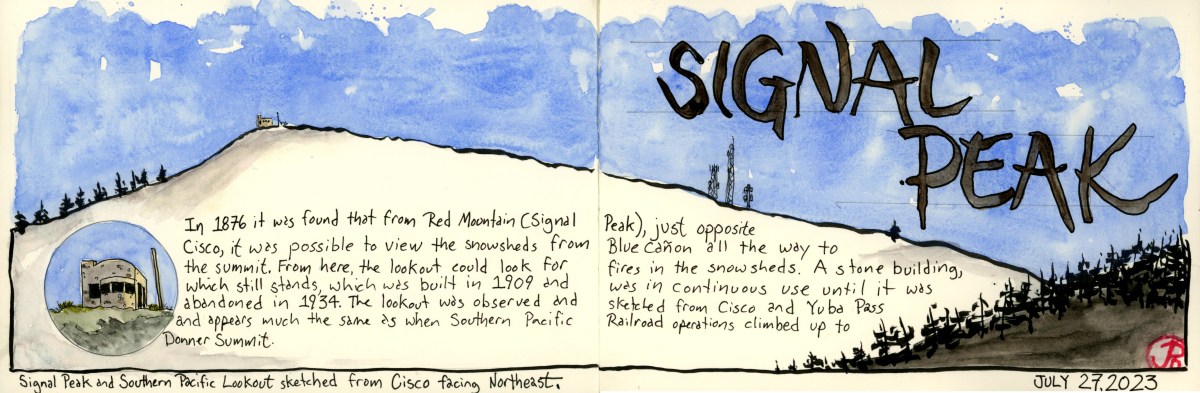 SIGNAL
PEAK
In 1876 it was found that from Red Mountain (Signal Peak), just opposite
Cisco, it was possible to view the snowsheds from Blue Cañon all the way to
the summit. From here, the lookout could look for fires in the snowsheds. A stone building,
which still stands, which was built in 1909 and was in continuous use until it was
abandoned in 1934. The lookout was observed and sketched from Cisco and Yuba Pass
and appears much the same as when Southern Pacific Railroad operations climbed up to
Donner Summit.
Signal Peak and Southern Pacific Lookout sketched from Cisco facing Northeast.
JULY 27, 2023